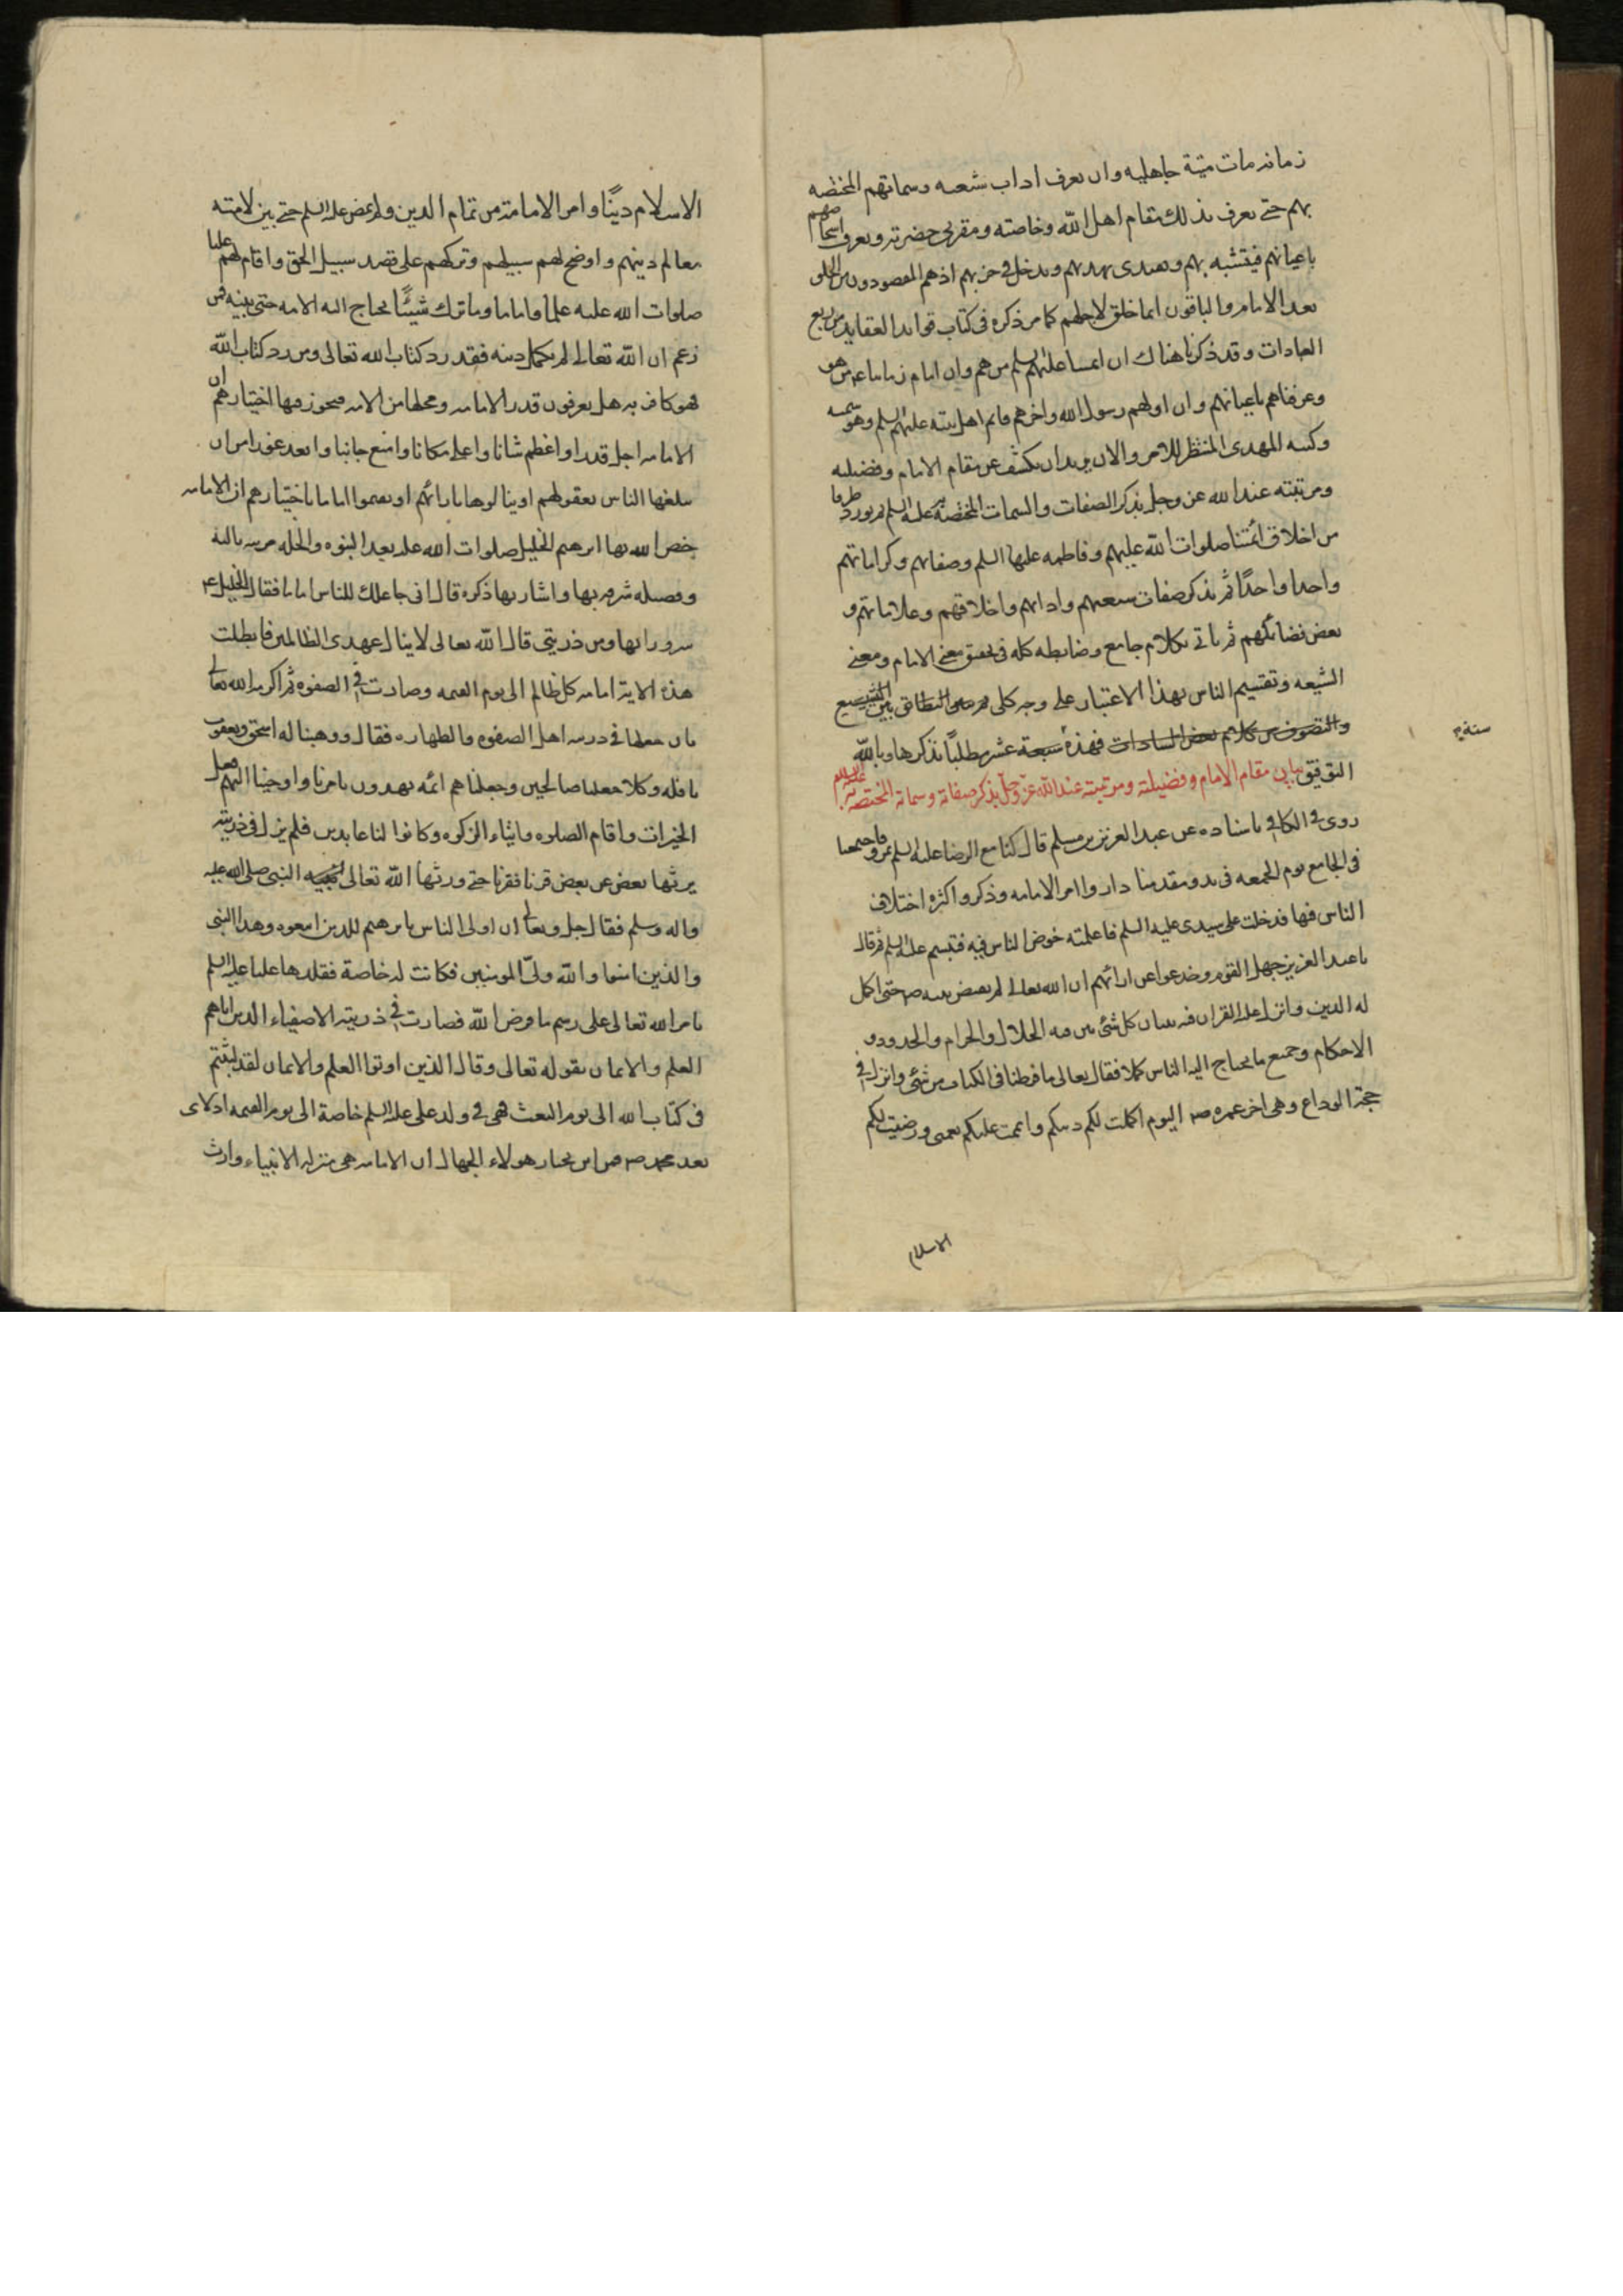 زمانه مات ميتة جاهليه وان يعرف اداب شيعه وسماتهم المختصه
بهم حتى يعرف بذلك مقام اهل الله وخاصته ومقربي حضرته ويعرف اصحابهم
باعيانهم فيتشبه بهم ويهتدى بهديهم ويدخل في حزبهم اذ هم المقصودون من الخلق
بعد الامام والباقون انما خلق لاجلهم كما مر ذكره فى كتاب قواعد العقايد من ربع
العبادات وقد ذكرنا هناك ان ائمتنا عليهم السلم من هم وان امام زماننا من هو
وعرفناهم باعيانهم وان اولهم رسول الله واخرهم قائم اهل بيته عليهم السلم وهو سميه
وكنيه المهدى المنتظر للامر والان نريد ان نكشف عن مقام الامام وفضيلته
ومرتبته عند الله عز وجل بذكر الصفات والسمات المختصه به عليه السلم ثم نورد طرفا
من اخلاق ائمتنا صلوات الله عليهم وفاطمه عليها السلم وصفاتهم وكراماتهم
واحدا واحدًا ثم نذكر صفات شيعتهم وادابهم واخلاقهم وعلاماتهم و
بعض فضائلهم ثم ناتى بكلام جامع وضابطه كله فى تحقيق معنى الامام ومعنى
الشيعه وتقسيم الناس بهذا الاعتبار على وجه كلى ثم التطابق بين التشيع
والتصوف من كلام بعض السادات فهذه سبعة عشر مطلبًا نذكرها وبالله
ستة
التوفيق بيان مقام الامام وفضيلته ومرتبته عند الله عز وجل بذكر صفاته وسماته المختصة به عليه السلام
روى فى الكافى باسناده عن عبد العزيز بن مسلم قال كنا مع الرضا عليه السلم بمرو فاجتمعنا
فى الجامع يوم الجمعه فى بدو مقدمنا داروا امر الامامه وذكروا كثرة اختلاف
الناس فيها فدخلت على سيدى عليه السلم فاعلمته خوض الناس فيه فتبسم عليه السلم ثم قال
يا عبد العزيز جهل القوم وخدعوا عن ارائهم ان الله تعالى لم يقبض نبيه ص حتى اكمل
له الدين وانزل عليه القران فيه تبيان كل شئ بين فيه الحلال والحرام والحدود و
الاحكام وجميع ما يحتاج اليه الناس كملا فقال تعالى ما فرطنا فى الكتاب من شئ وانزل فى
حجة الوداع وهى اخر عمره ص اليوم اكملت لكم دينكم واتممت عليكم نعمتى ورضيت لكم
الاسلام
الاسلام دينًا وامر الامامة من تمام الدين ولم يمض عليه السلم حتى بين لامته
معالم دينهم واوضح لهم سبيلهم وتركهم على قصد سبيل الحق واقام لهم عليا
صلوات الله عليه علمًا واماما وما ترك شيئًا يحتاج اليه الامه حتى بينه فمن
زعم ان الله تعالى لم يكمل دينه فقد رد كتاب الله تعالى ومن رد كتاب الله
فهو كافر به هل يعرفون قدر الامامه ومحلها من الامه فيجوز فيها اختيارهم ان
الامامه اجل قدرا واعظم شانا واعلى مكانا وامنع جانبا وابعد غورا من ان
يبلغها الناس بعقولهم او ينالوها بارائهم او يقيموا اماما باختيارهم ان الامامه
خص الله بها ابرهيم الخليل صلوات الله عليه بعد النبوه والخله مرتبه ثالثه
وفضيله شرفه بها واشاد بها ذكره قال انى جاعلك للناس اماما فقال الخليل ع
سرورا بها ومن ذريتى قال الله تعالى لا ينال عهدى الظالمين فابطلت
هذه الايه امامه كل ظالم الى يوم القيمه وصارت فى الصفوه ثم اكرمه الله تعالى
بان جعلها فى ذريته اهل الصفوه والطهاره فقال ووهبنا له اسحق ويعقوب
نافله وكلا جعلنا صالحين وجعلناهم ائمه يهدون بامرنا واوحينا اليهم فعل
الخيرات واقام الصلوه وايتاء الزكوه وكانوا لنا عابدين فلم يزل فى ذريته
يرثها بعض عن بعض قرنا فقرنا حتى ورثها الله تعالى النبى صلى الله عليه
واله وسلم فقال جل وتعالى ان اولى الناس بابرهيم للذين اتبعوه وهذا النبى
والذين امنوا والله ولىّ المومنين فكانت له خاصة فقلدها عليا عليه السلم
بامر الله تعالى على رسم ما فرض الله فصارت فى ذريته الاصفياء الذين اتاهم
العلم والايمان بقوله تعالى وقال الذين اوتوا العلم والايمان لقد لبثتم
فى كتاب الله الى يوم البعث فهى فى ولد على عليه السلم خاصة الى يوم القيمه اذ لا نبى
بعد محمد ص فمن اين يختار هولاء الجهال ان الامامه هى منزله الانبياء وارث